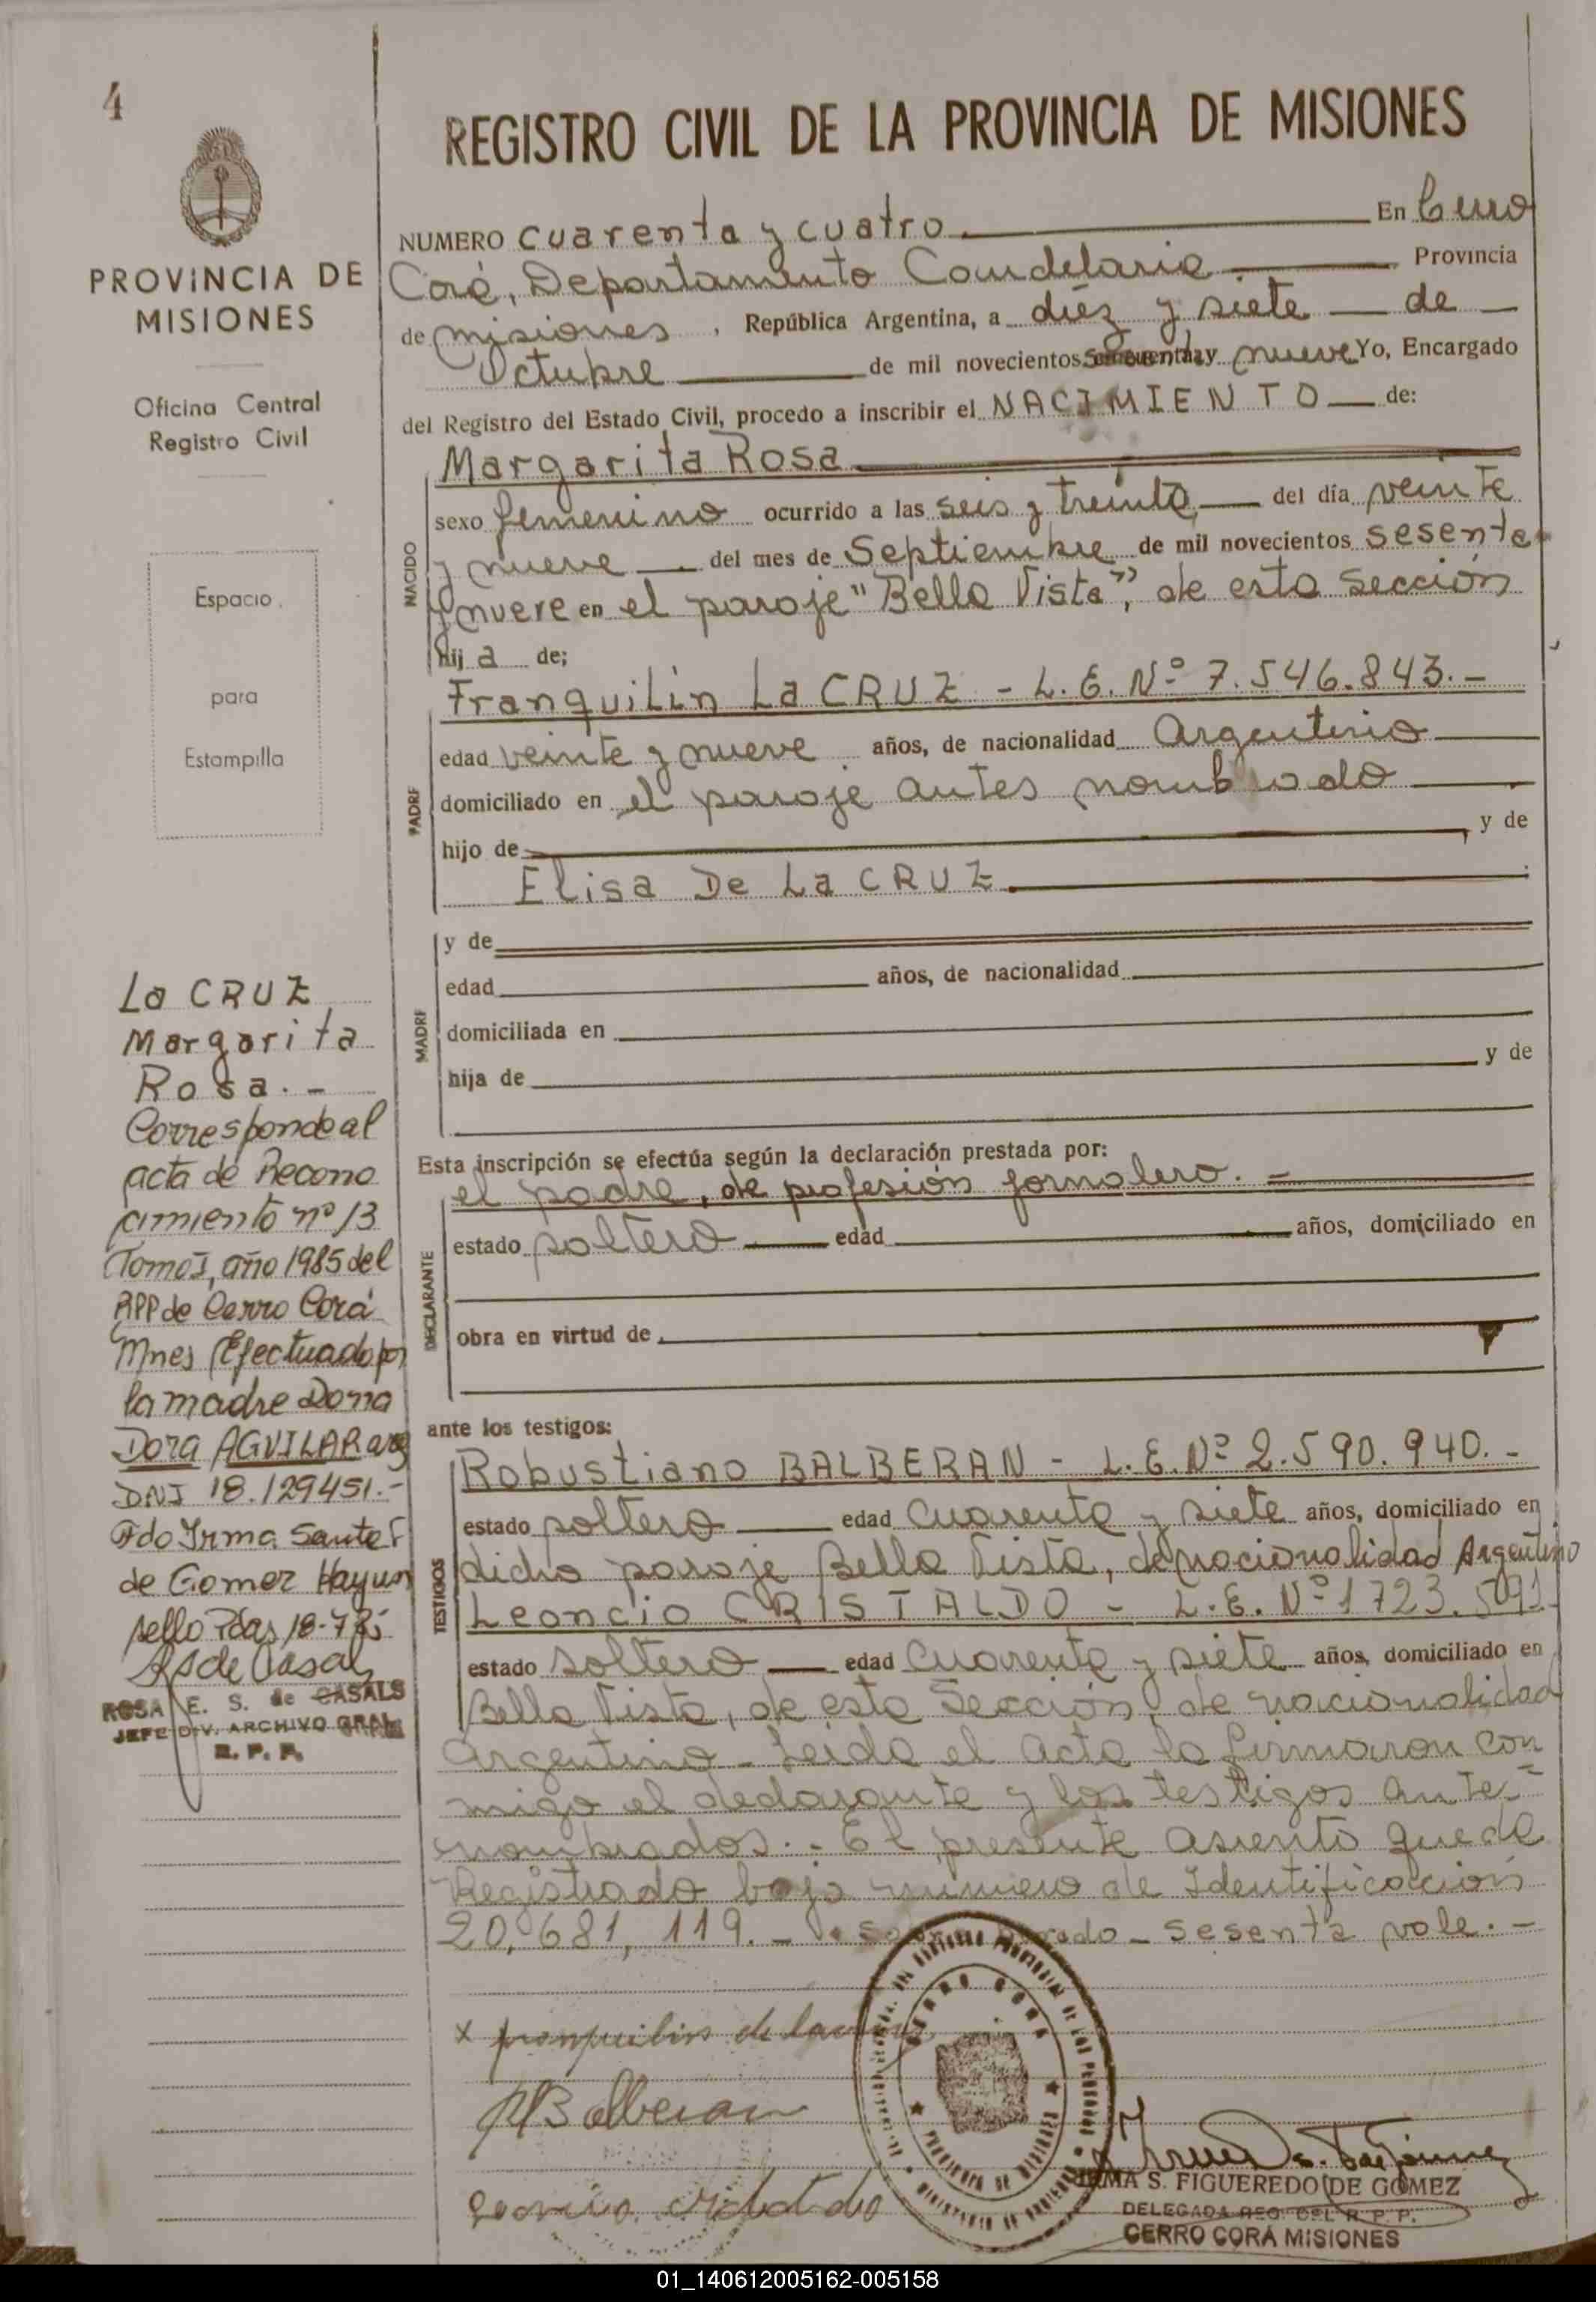 4
REGISTRO CIVIL DE LA PROVINCIA DE MISIONES
PROVINCIA DE
MISIONES
Oficina Central
Registro Civil
Espacio
para
Estampilla
NUMERO cuarenta y cuatro En Cerro
Corá, Departamento Candelaria Provincia
de misiones, República Argentina, a diéz y siete de
Octubre de mil novecientos sesenta y nueve Yo, Encargado
del Registro del Estado Civil, procedo a inscribir el NACIMIENTO de:
NACIDO
Margarita Rosa
sexo femenino ocurrido a las seis y treinta del día veinte
y nueve del mes de Septiembre de mil novecientos sesenta
y nueve en el paraje "Bella Vista", de esta sección
hija de;
PADRE
Franquilin La CRUZ - L.E. Nº 7.546.843.-
edad veinte y nueve años, de nacionalidad Argentino
domiciliado en el paraje antes nombrado
hijo de y de
Elisa De La CRUZ
MADRE
y de
edad años, de nacionalidad
domiciliada en
hija de y de
Esta inscripción se efectúa según la declaración prestada por:
DECLARANTE
el padre, de profesión jornalero.-
estado soltero edad años, domiciliado en
obra en virtud de
ante los testigos:
TESTIGOS
Robustiano BALBERAN - L.E. Nº 2.590.940.-
estado soltero edad cuarenta y siete años, domiciliado en
dicho paraje Bella Vista, de nacionalidad Argentino
Leoncio CRISTALDO - L.E. Nº 1723.591
estado soltero edad cuarenta y siete años, domiciliado en
Bella Vista, de esta Sección, de nacionalidad
Argentino - Leida el acta la firmaron con
migo el declarante y los testigos ante=
nombrados.- El presente asiento queda
Registrado bajo número de Identificación
20,681,119.- sesenta vale.-
La CRUZ
Margarita
Rosa.-
Corresponde al
acta de Recono
cimiento nº 13
Tomo I, año 1985 del
RPP de Cerro Corá
Mnes Efectuado por
la madre Doña
Dora AGUILAR arg
DNI 18.129451.-
Fdo Irma
de Gomez Hay un
sello Pdas 18-7-85
RS de Casals
ROSA E. S. de CASALS
JEFE DIV. ARCHIVO GRAL
R. P. P.
x franquilin de la cruz
RBalberan
CERRO CORA
PROVINCIA DE MISIONES
IRMA S. FIGUEREDO DE GOMEZ
DELEGADA REG. DEL R. P. P.
CERRO CORÁ MISIONES
01_140612005162-005158